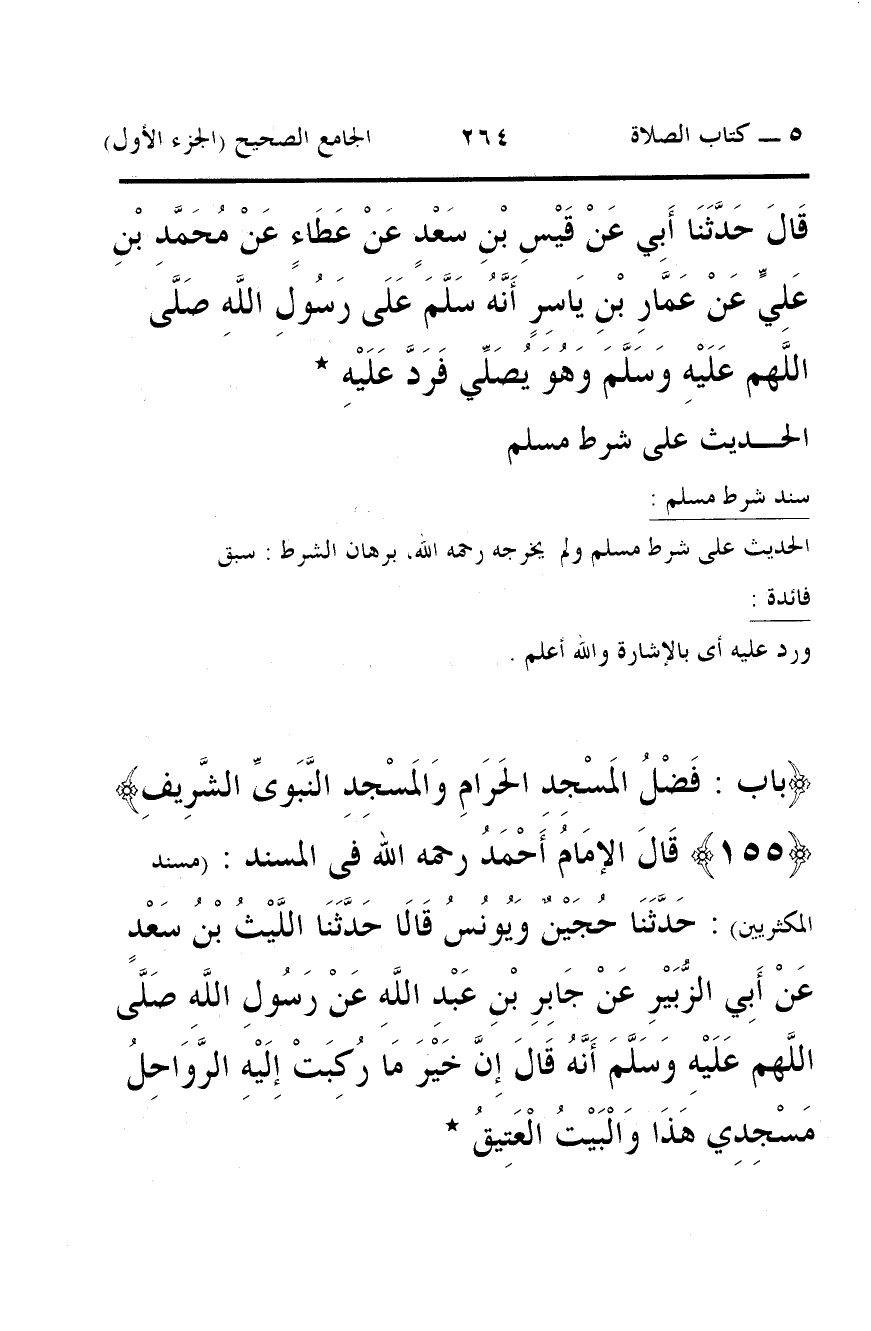 ٥ ــ كتاب الصلاة ٢٦٤ الجامع الصحيح (الجزء الأول)
قَالَ حَدَّثَنَا أَبِي عَنْ قَيْسِ بْنِ سَعْدٍ عَنْ عَطَاءٍ عَنْ مُحَمَّدِ بْنِ
عَلِيٍّ عَنْ عَمَّارِ بْنِ يَاسِرٍ أَنَّهُ سَلَّمَ عَلَى رَسُولِ اللَّهِ صَلَّى
اللَّهم عَلَيْهِ وَسَلَّمَ وَهُوَ يُصَلِّي فَرَدَّ عَلَيْهِ *
الحـــديث على شرط مسلم
سند شرط مسلم :
الحديث على شرط مسلم ولم يخرجه رحمه الله، برهان الشرط : سبق
فائدة :
ورد عليه أى بالإشارة والله أعلم .
﴿باب : فَضْلُ المَسْجِدِ الحَرَامِ وَالمَسْجِدِ النَّبَوىِّ الشَّرِيفِ﴾
﴿١٥٥﴾ قَالَ الإمَامُ أَحْمَدُ رحمه الله فى المسند : (مسند
المكثريين) : حَدَّثَنَا حُجَيْنٌ وَيُونُسُ قَالَا حَدَّثَنَا اللَّيْثُ بْنُ سَعْدٍ
عَنْ أَبِي الزُّبَيْرِ عَنْ جَابِرِ بْنِ عَبْدِ اللَّهِ عَنْ رَسُولِ اللَّهِ صَلَّى
اللَّهم عَلَيْهِ وَسَلَّمَ أَنَّهُ قَالَ إِنَّ خَيْرَ مَا رُكِبَتْ إِلَيْهِ الرَّوَاحِلُ
مَسْجِدِي هَذَا وَالْبَيْتُ الْعَتِيقُ *